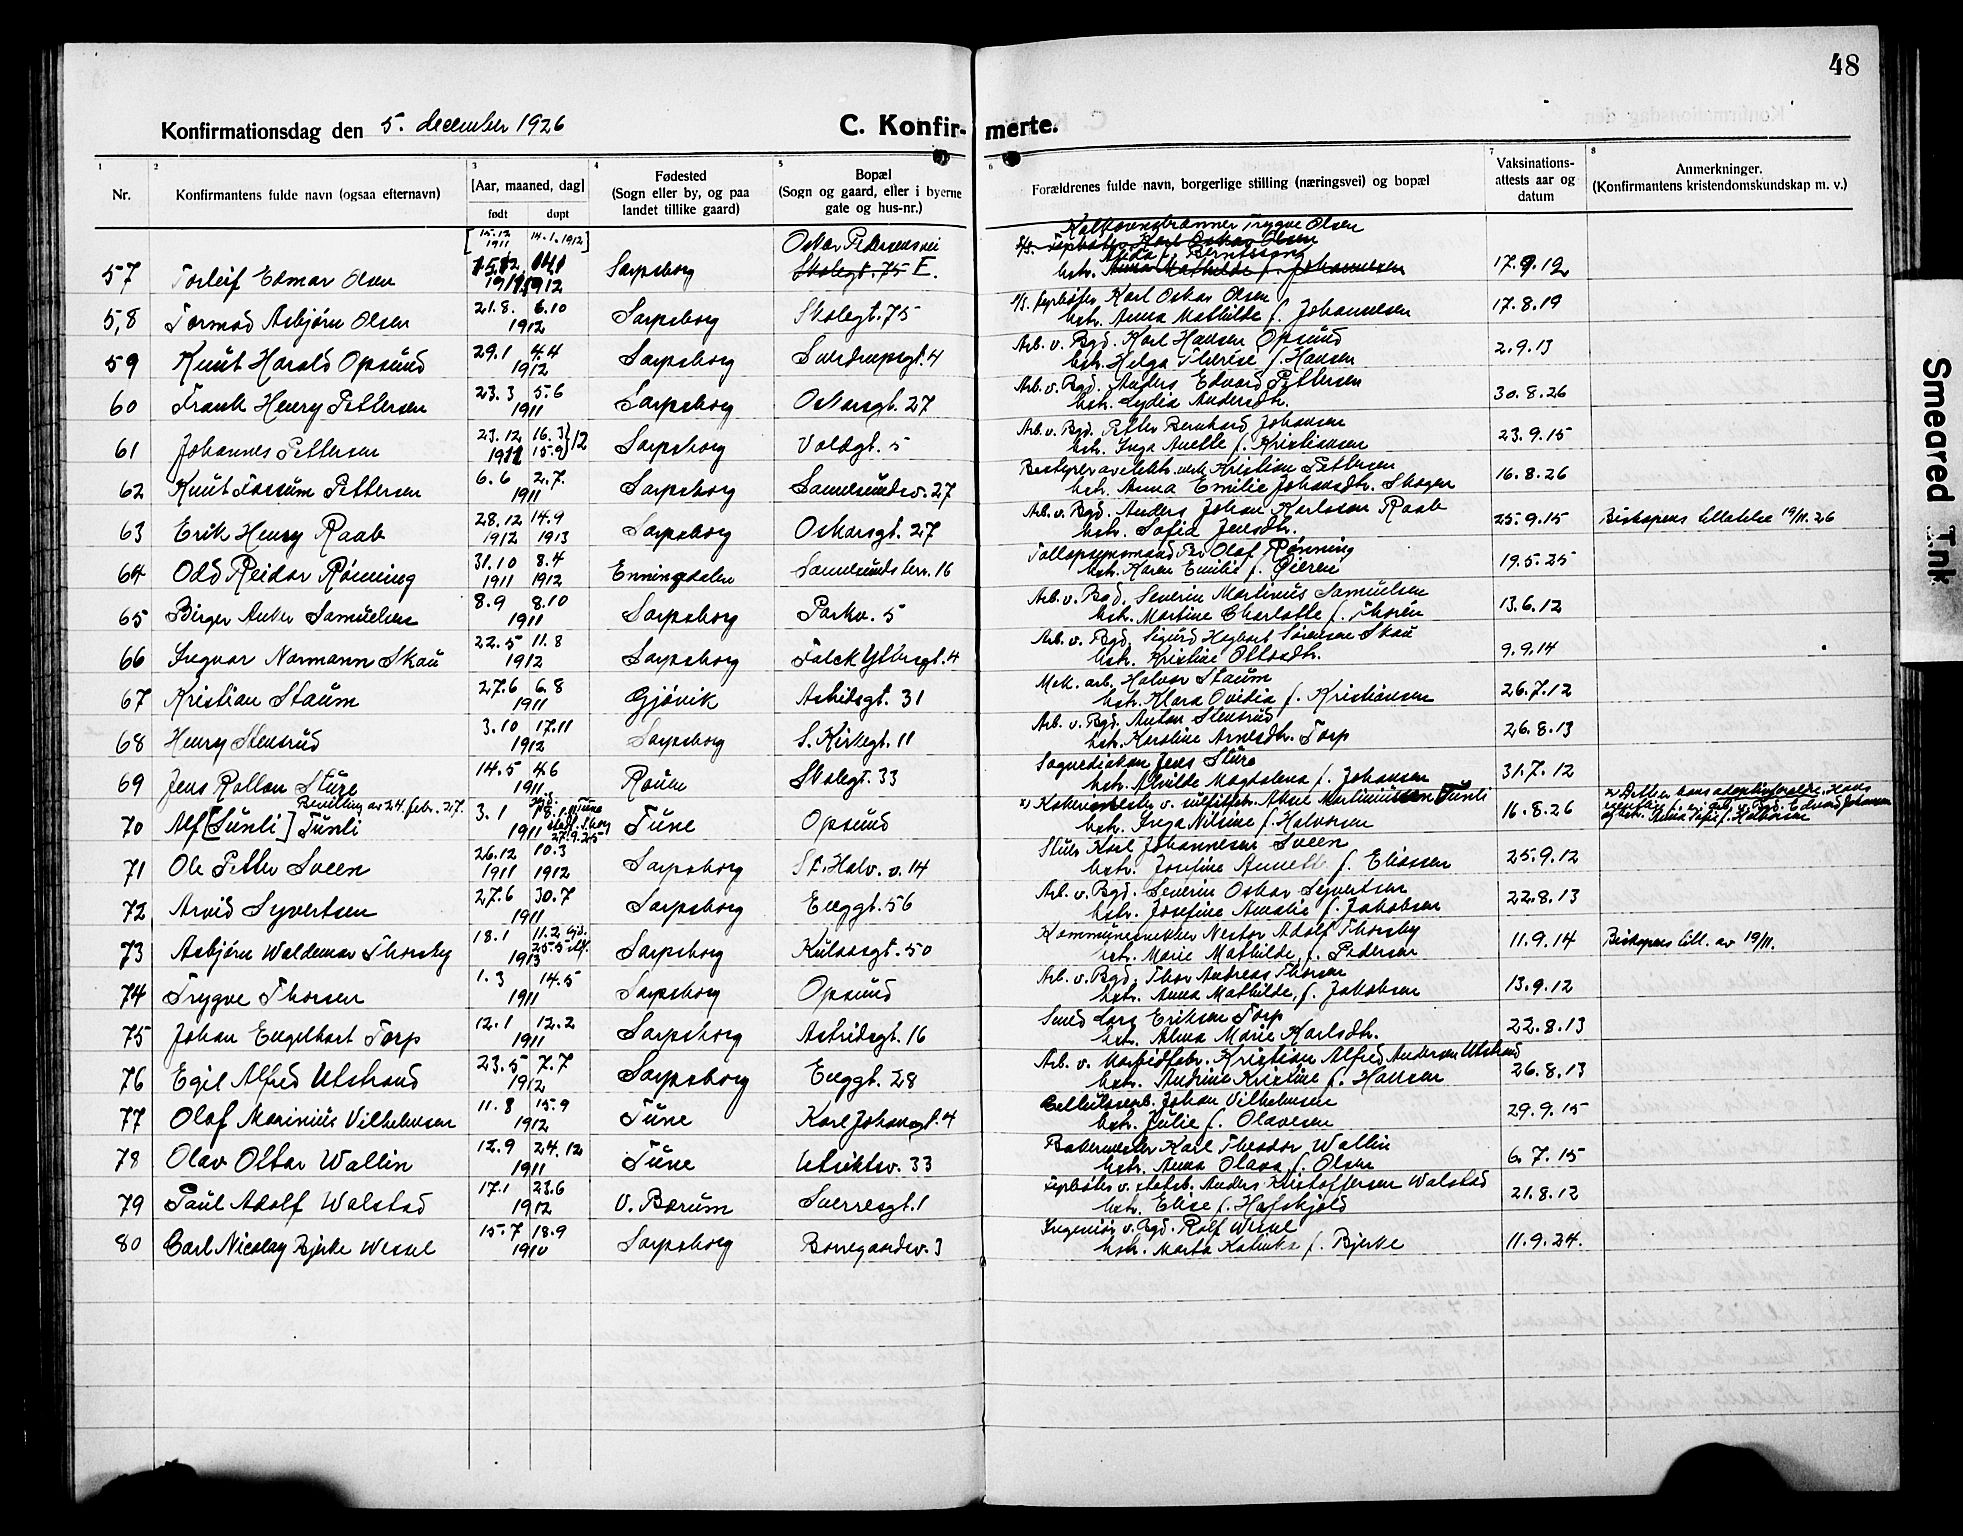 48
Konfirmationsdag den 5. december 1926
C. Konfir- merte.
1 2 3 4 5 6 7 8
Nr. Konfirmantens fulde navn (ogsaa efternavn) [Aar, maaned, dag] født døpt Fødested (Sogn eller by, og paa landet tillike gaard) Bopæl (Sogn og gaard, eller i byerne gate og hus-nr.) Forældrenes fulde navn, borgerlige stilling (næringsvei) og bopæl Vaksinations-attests aar og datum Anmerkninger. (Konfirmantens kristendomskundskap m. v.)
[15.12 1911 14.1.1912] Oskar Pedersens vei Trygve Olsen
57 Torleif Edmar Olsen Sarpsborg Skolegt. 75 E. Karl Oskar Olsen
hstr. Anna Mathilde f. Johannesen 17.9.12
58 Tormod Asbjørn Olsen 21.8. 6.10 1912 Sarpsborg Skolegt. 75 Fyrbøter Karl Oskar Olsen
hstr. Anna Mathilde f. Johannesen 17.8.19
59 Knut Harald Opsund 29.1 4.4 1912 Sarpsborg Sverdrupsgt. 4 Arb. v. Bgd. Karl Hansen Opsund
hstr. Helga Therese f. Hansen 2.9.13
60 Frank Henry Pettersen 23.3 5.6 1911 Sarpsborg Oskarsgt. 27 Arb. v. Bgd. Anders Edvard Pettersen
hstr. Lydia Andersdtr. 30.8.26
61 Johannes Pettersen 23.12 1911 16.3 15.9 }12 Sarpsborg Voldgt. 5 Arb. v. Bgd. Petter Bernhard Johansen
hstr. Inga Anette f. Kristiansen 23.9.15
62 Knut Fossum Pettersen 6.6 2.7. 1911 Sarpsborg Sandesundsv. 27 Bestyrer av elektr. verk Kristian Pettersen
hstr. Anna Emilie Johansdtr. Skogen 16.8.26
63 Erik Henry Raab 28.12 1912 14.9 1913 Sarpsborg Oskarsgt. 27 Arb. v. Bgd. Anders Johan Karlsson Raab
hstr. Sofia Jensdtr. 25.9.15 Biskopens tillatelse 19/11.26
64 Odd Reidar Rønning 31.10 1911 8.4 1912 Enningdalen Sandesunds terr. 16 Tollopsynsmand Per Olaf Rønning
hstr. Karen Emilie f. Øieren 19.5.25
65 Birger Anker Samuelsen 8.9 8.10 1911 Sarpsborg Parkv. 5 Arb. v. Bgd. Severin Martinius Samuelsen
hstr. Martine Charlotte f. Thorèn 13.6.12
66 Ingvar Normann Skau 22.5 11.8 1912 Sarpsborg Falck Ytters gt. 4 Arb. v. Bgd. Sigurd Hagbart Sørensen Skau
hstr. Kristine Ottosdtr. 9.9.14
67 Kristian Staum 27.6 6.8 1911 Gjøvik Astridsgt. 31 Mek. arb. Halvor Staum
hstr. Klara Ovidia f. Kristiansen 26.7.12
68 Henry Stensrud 3.10 17.11 1912 Sarpsborg S. Kirkegt. 11 Arb. v. Bgd. Anton Stensrud
hstr. Karoline Arnesdtr. Torp 26.8.13
69 Jens Rollon Sture 14.5 4.6 1911 Rouen Skolegt. 33 Sognediakon Jens Sture
hstr. Alvilde Magdalena f. Johansen 31.7.12
Bevilling av 24. febr. 27.
70 Alf [Sunli] Tunli 3.1 1911 Tune Opsund x) Kokermester v. sulfitfabr. Aksel Martiniussen Tunli
hstr. Inga Nilsine f. Halvorsen 16.8.26 x) Dette er hans adoptivforeldre. Hans
v. Bgd. Edvard Johansen
71 Ole Petter Sveen 26.12 1911 10.3 1912 Sarpsborg St. Halv. v. 14 Stuer Karl Johannesen Sveen
hstr. Josefine Annette f. Eliassen 25.9.12
72 Arvid Syvertsen 27.6 30.7 1911 Sarpsborg Enggt. 56 Arb. v. Bgd. Severin Oskar Syvertsen
hstr. Josefine Amalie f. Jakobsen 22.8.13
73 Asbjørn Waldemar Thorsby 18.1 11.2 25.5 1913 Sarpsborg Kulaasgt. 50 Kommunesnekker Nestor Adolf Thorsby
hstr. Marie Mathilde f. Pedersen 11.9.14 Biskopens till. av 19/11.
74 Trygve Thorsen 1.3 14.5 1911 Sarpsborg Opsund Arb. v. Bgd. Thor Andreas Thorsen
hstr. Anna Mathilde, f. Jakobsen 13.9.12
75 Johan Engelhart Torp 12.1 12.2 1911 Sarpsborg Astridsgt. 16 Smed Lars Eriksen Torp
hstr. Alma Marie Karlsdtr. 22.8.13
76 Egil Alfred Ulstrand 23.5 7.7 1912 Sarpsborg Enggt. 28 Arb. v. Kristian Alfred Andersen Ulstrand
hstr. Andrine Kristine f. Hansen 26.8.13
77 Olaf Marinius Vilhelmsen 11.8 15.9 1912 Tune Karl Johansgt. 4 Cellulosearb. Johan Vilhelmsen
hstr. Julie f. Olavesen 29.9.15
78 Olav Ottar Wallin 12.9 24.12 1911 Tune Utsiktsv. 33 Bakermester Karl Theodor Wallin
hstr. Anna Olava f. Olsen 6.7.15
79 Paul Adolf Walstad 17.1 23.6 1912 V. Bærum Sverresgt. 1 Fyrbøter v. statsb. Anders Kristoffersen Walstad
hstr. Elise f. Hafskjold 21.8.12
80 Carl Nicolay Bjerke Wessel 15.7 18.9 1910 Sarpsborg Borregaardsv. 3 Ingeniør v. Bgd. Rolf Wessel
hstr. Marta Katinka f. Bjerke 11.9.24.
Smeared Ink